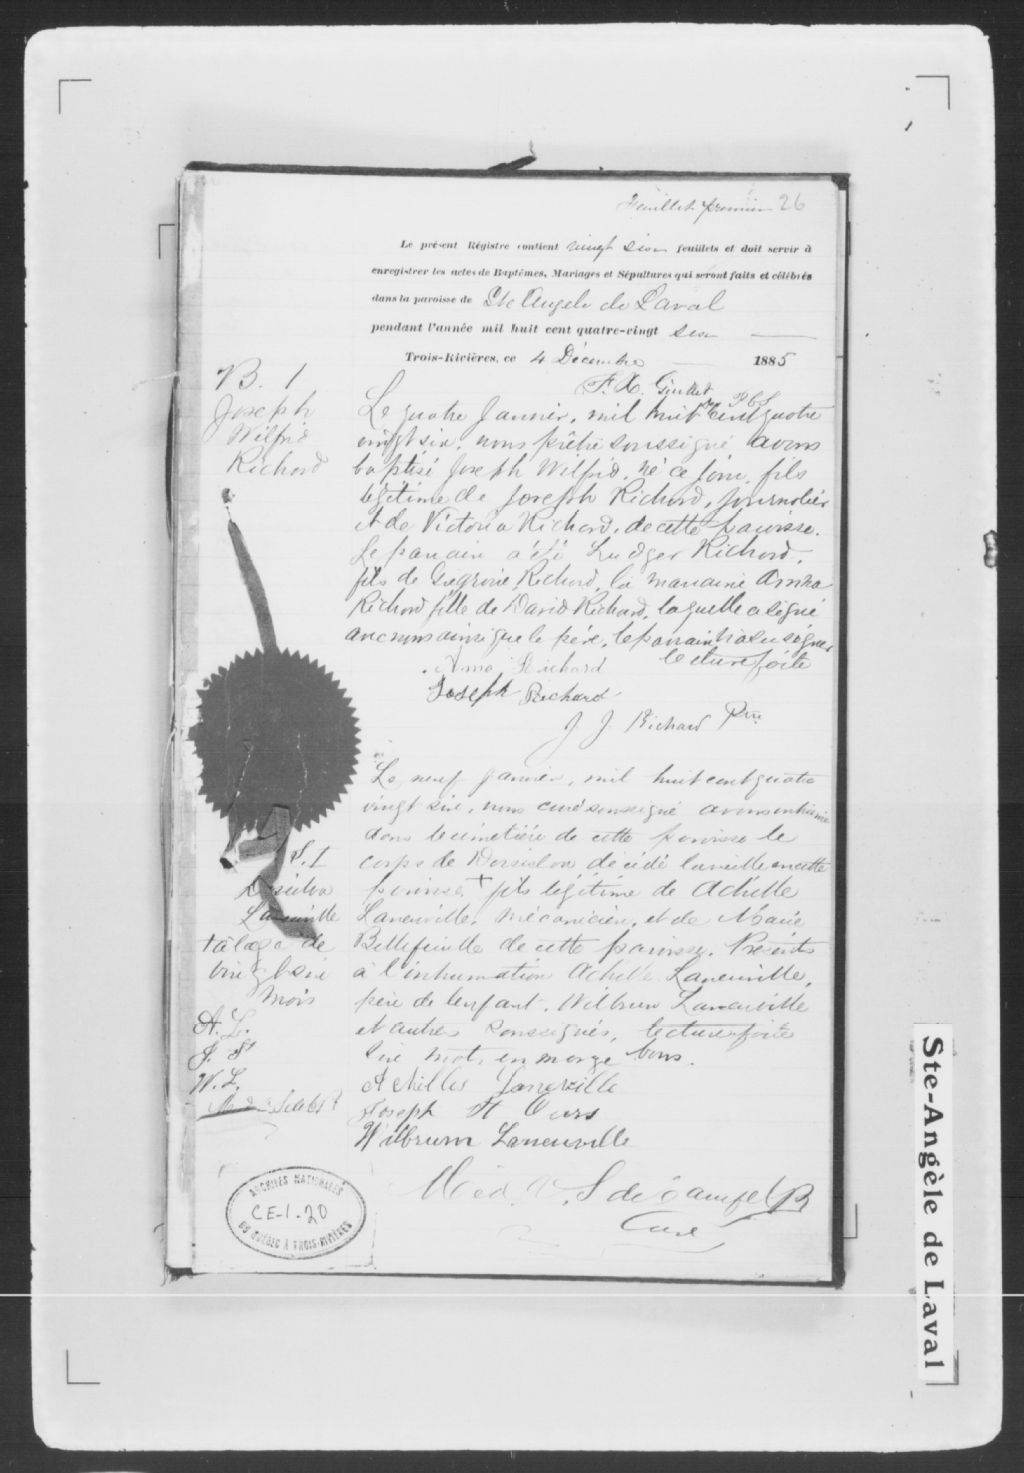 Feuillet premier 26
Le présent Régistre contient vingt six feuillets et doit servir à
enregistrer les actes de Baptêmes, Mariages et Sépultures qui seront faits et célébrés
dans la paroisse de Ste Angele de Laval
pendant l'année mil huit cent quatre-vingt six
Trois-Rivières, ce 4 Décembre 1885
F. X. Guillet
B. 1
Joseph
Wilfrid
Richard
Le quatre Janvier, mil huit cent quatre
vingt six, nous prêtre soussigné avons
baptisé Joseph Wilfrid, né ce jour, fils
légitime de Joseph Richard, journalier
et de Victoria Richard, de cette paroisse.
Le parrain a été Ludger Richard,
fils de Grégroire Richard, la marraine Anna
Richard fille de David Richard, laquelle a signé
avec nous ainsi que le père, le parrain n'a su signer
lecture faite
Anna Richard
Joseph Richard
J. J. Richard Ptre
S. 1
Laneuville
tâlage de
vingt six
mois
A. L.
J. St
W. L.
Le neuf janvier, mil huit cent quatre
vingt six, nous curé soussigné avons inhumé
dans le cimetière de cette paroisse le
corps de décédé la veille en cette
paroisse + fils légitime de Achille
Laneuville, mécanicien, et de Marie
Bellefeuille de cette paroisse. Présents
à l'inhumation Achille Laneuville,
père de l'enfant, Wilbrun Laneuville
et autres soussignés, lecture faite
six mots en marge bons.
Achilles Laneville
Joseph St Ours
Wilbrum Laneuville
Curé
ARCHIVES NATIONALES
CE-1-20
DU QUÉBEC À TROIS-RIVIÈRES
Ste-Angèle de Laval